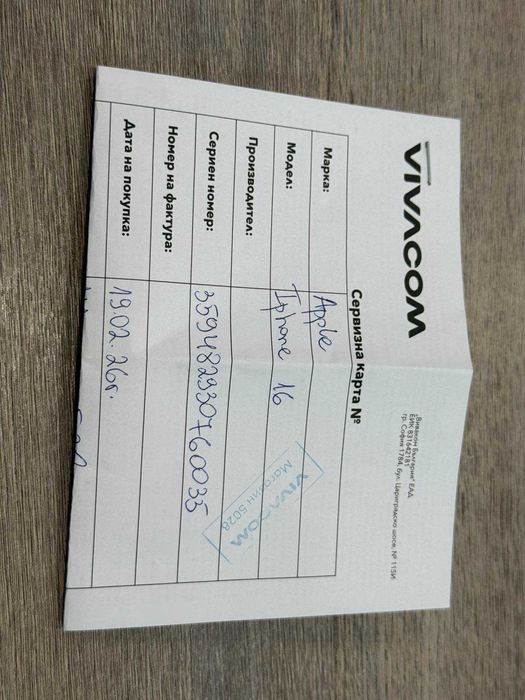 VIVACOM
"Виваком България" ЕАД
ЕИК 831642181
гр. София 1784, бул. Цариградско шосе, № 115И
Сервизна карта №
Марка: Apple
Модел: Iphone 16
Производител:
Сериен номер: 359482930760035
Номер на фактура:
Дата на покупка: 19.02.26г.
VIVACOM
Магазин 5028